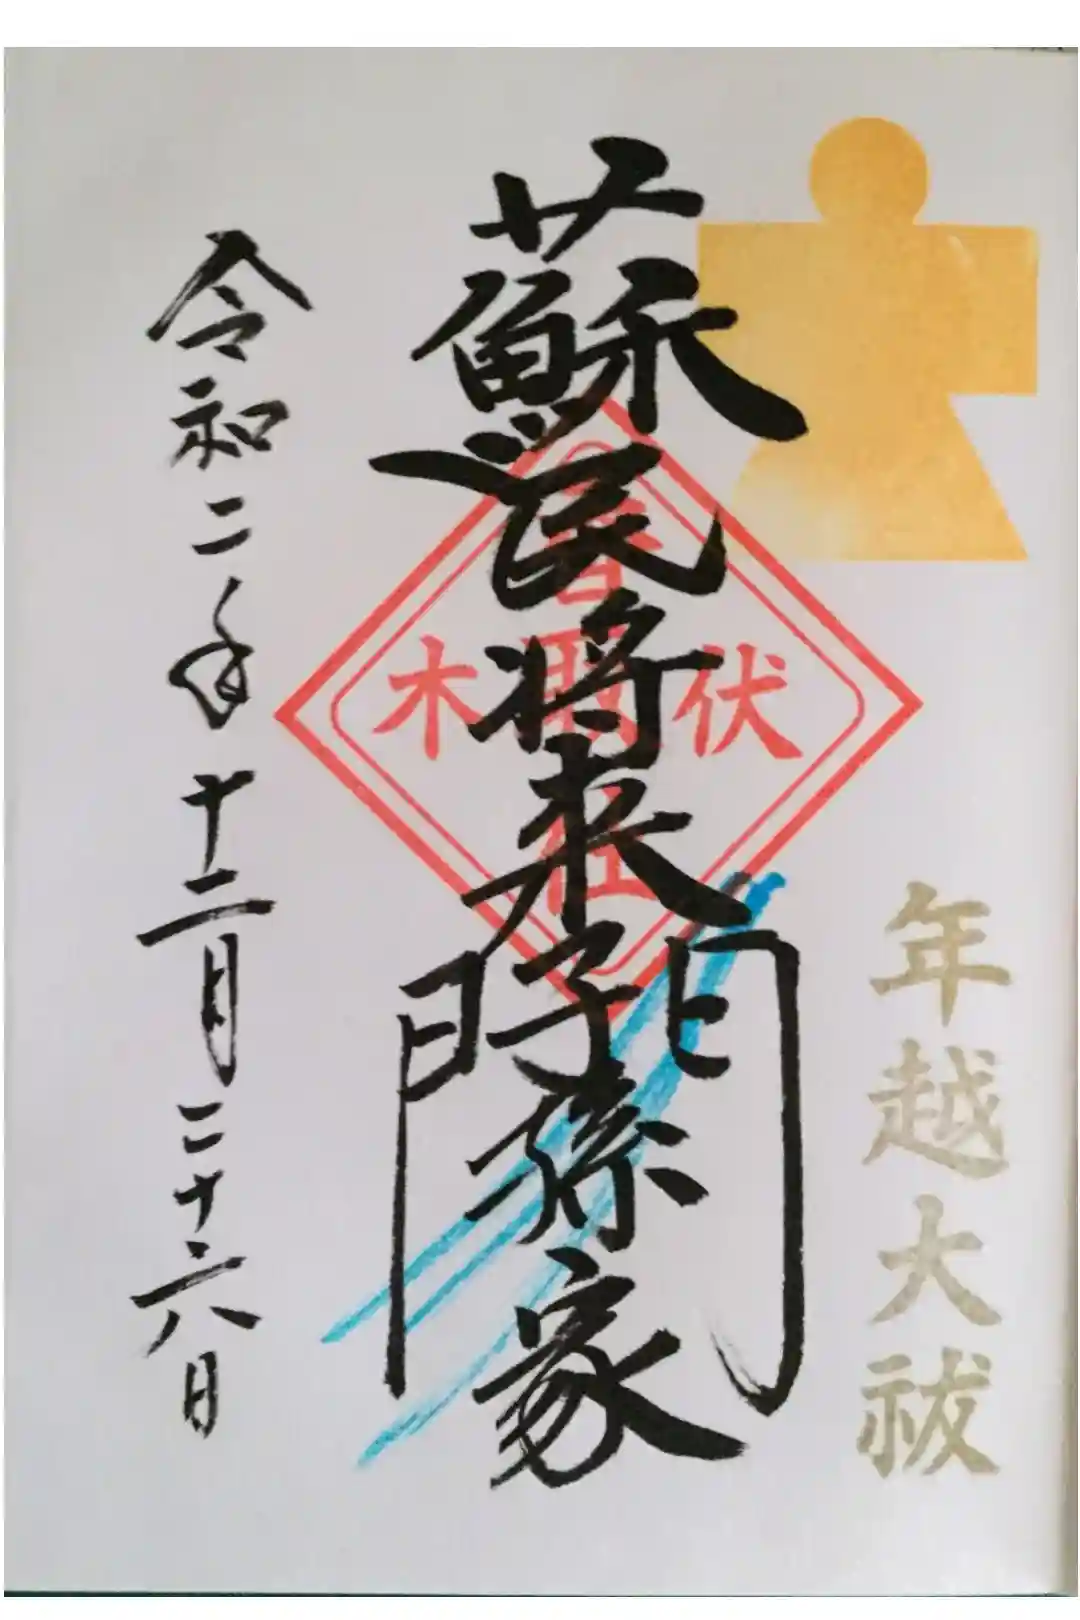 年越大祓
蘇民将来子孫家門
伏木
香取
社
令和二年十二月二十六日